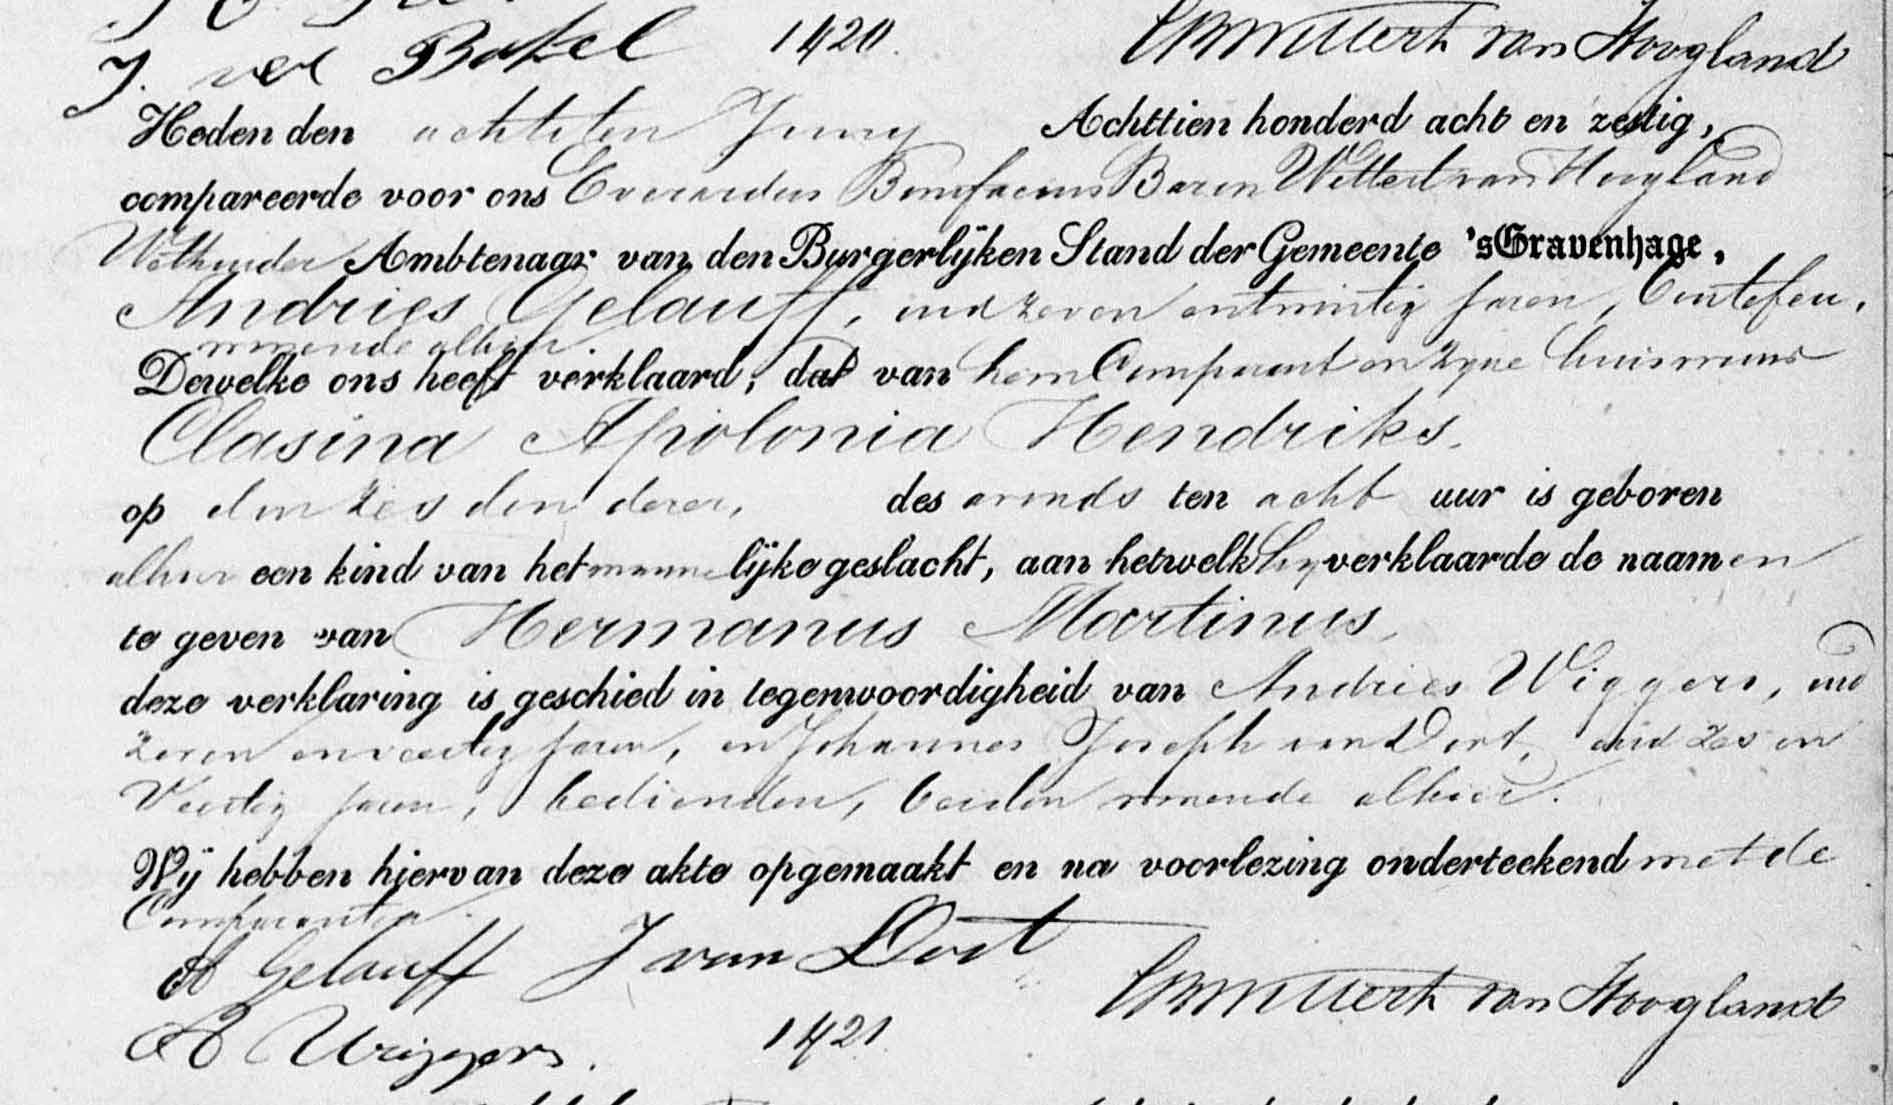 J. ver Bakel
1420.
EBWittert van Hoogland
Heden den achtsten Juny Achttien honderd acht en zestig,
compareerde voor ons Everardus Bonifacius Baron Wittert van Hoogland
Wethouder Ambtenaar van den Burgerlijken Stand der Gemeente 'sGravenhage,
Andries Gelauff, oud zeven en twintig Jaren,
wonende alhier.
Dewelke ons heeft verklaard, dat van hem Comparant en zyne huisvrouw
Clasina Apolonia Hendriks,
op den zesden dezer, des avonds ten acht uur is geboren
alhier een kind van het mannelijke geslacht, aan hetwelk hy verklaarde de naamen
te geven van Hermanus Martinus,
deze verklaring is geschied in tegenwoordigheid van Andries Wiggers, oud
zeven en veertig Jaren, en Johannes Joseph van Oort, oud zes en
Veertig Jaren, bedienden, beiden wonende alhier.
Wij hebben hiervan deze akte opgemaakt en na voorlezing onderteekend met de
Comparanten.
A Gelauff J van Oort
EBWittert van Hoogland
A Wiggers.
1421